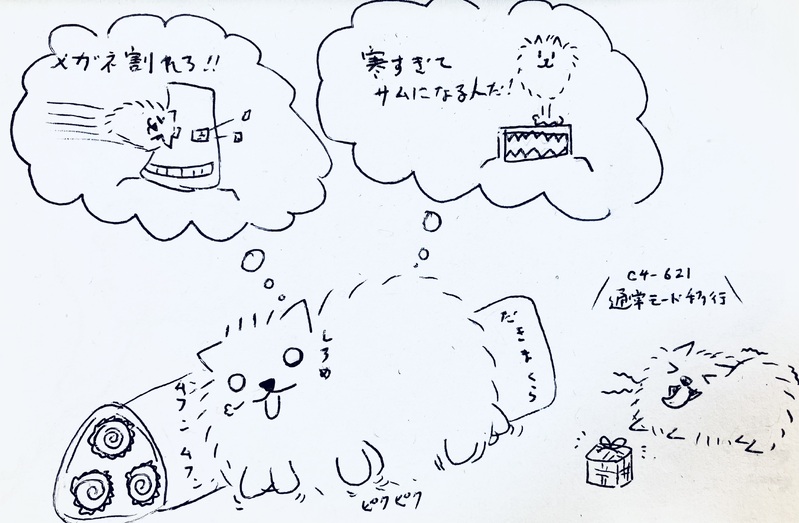 メガネ割れろ!!
寒すぎて
サムになる人だ!
しろめ
だきまくら
ムフン ムフン
ピクピク
C4-621
通常モード移行